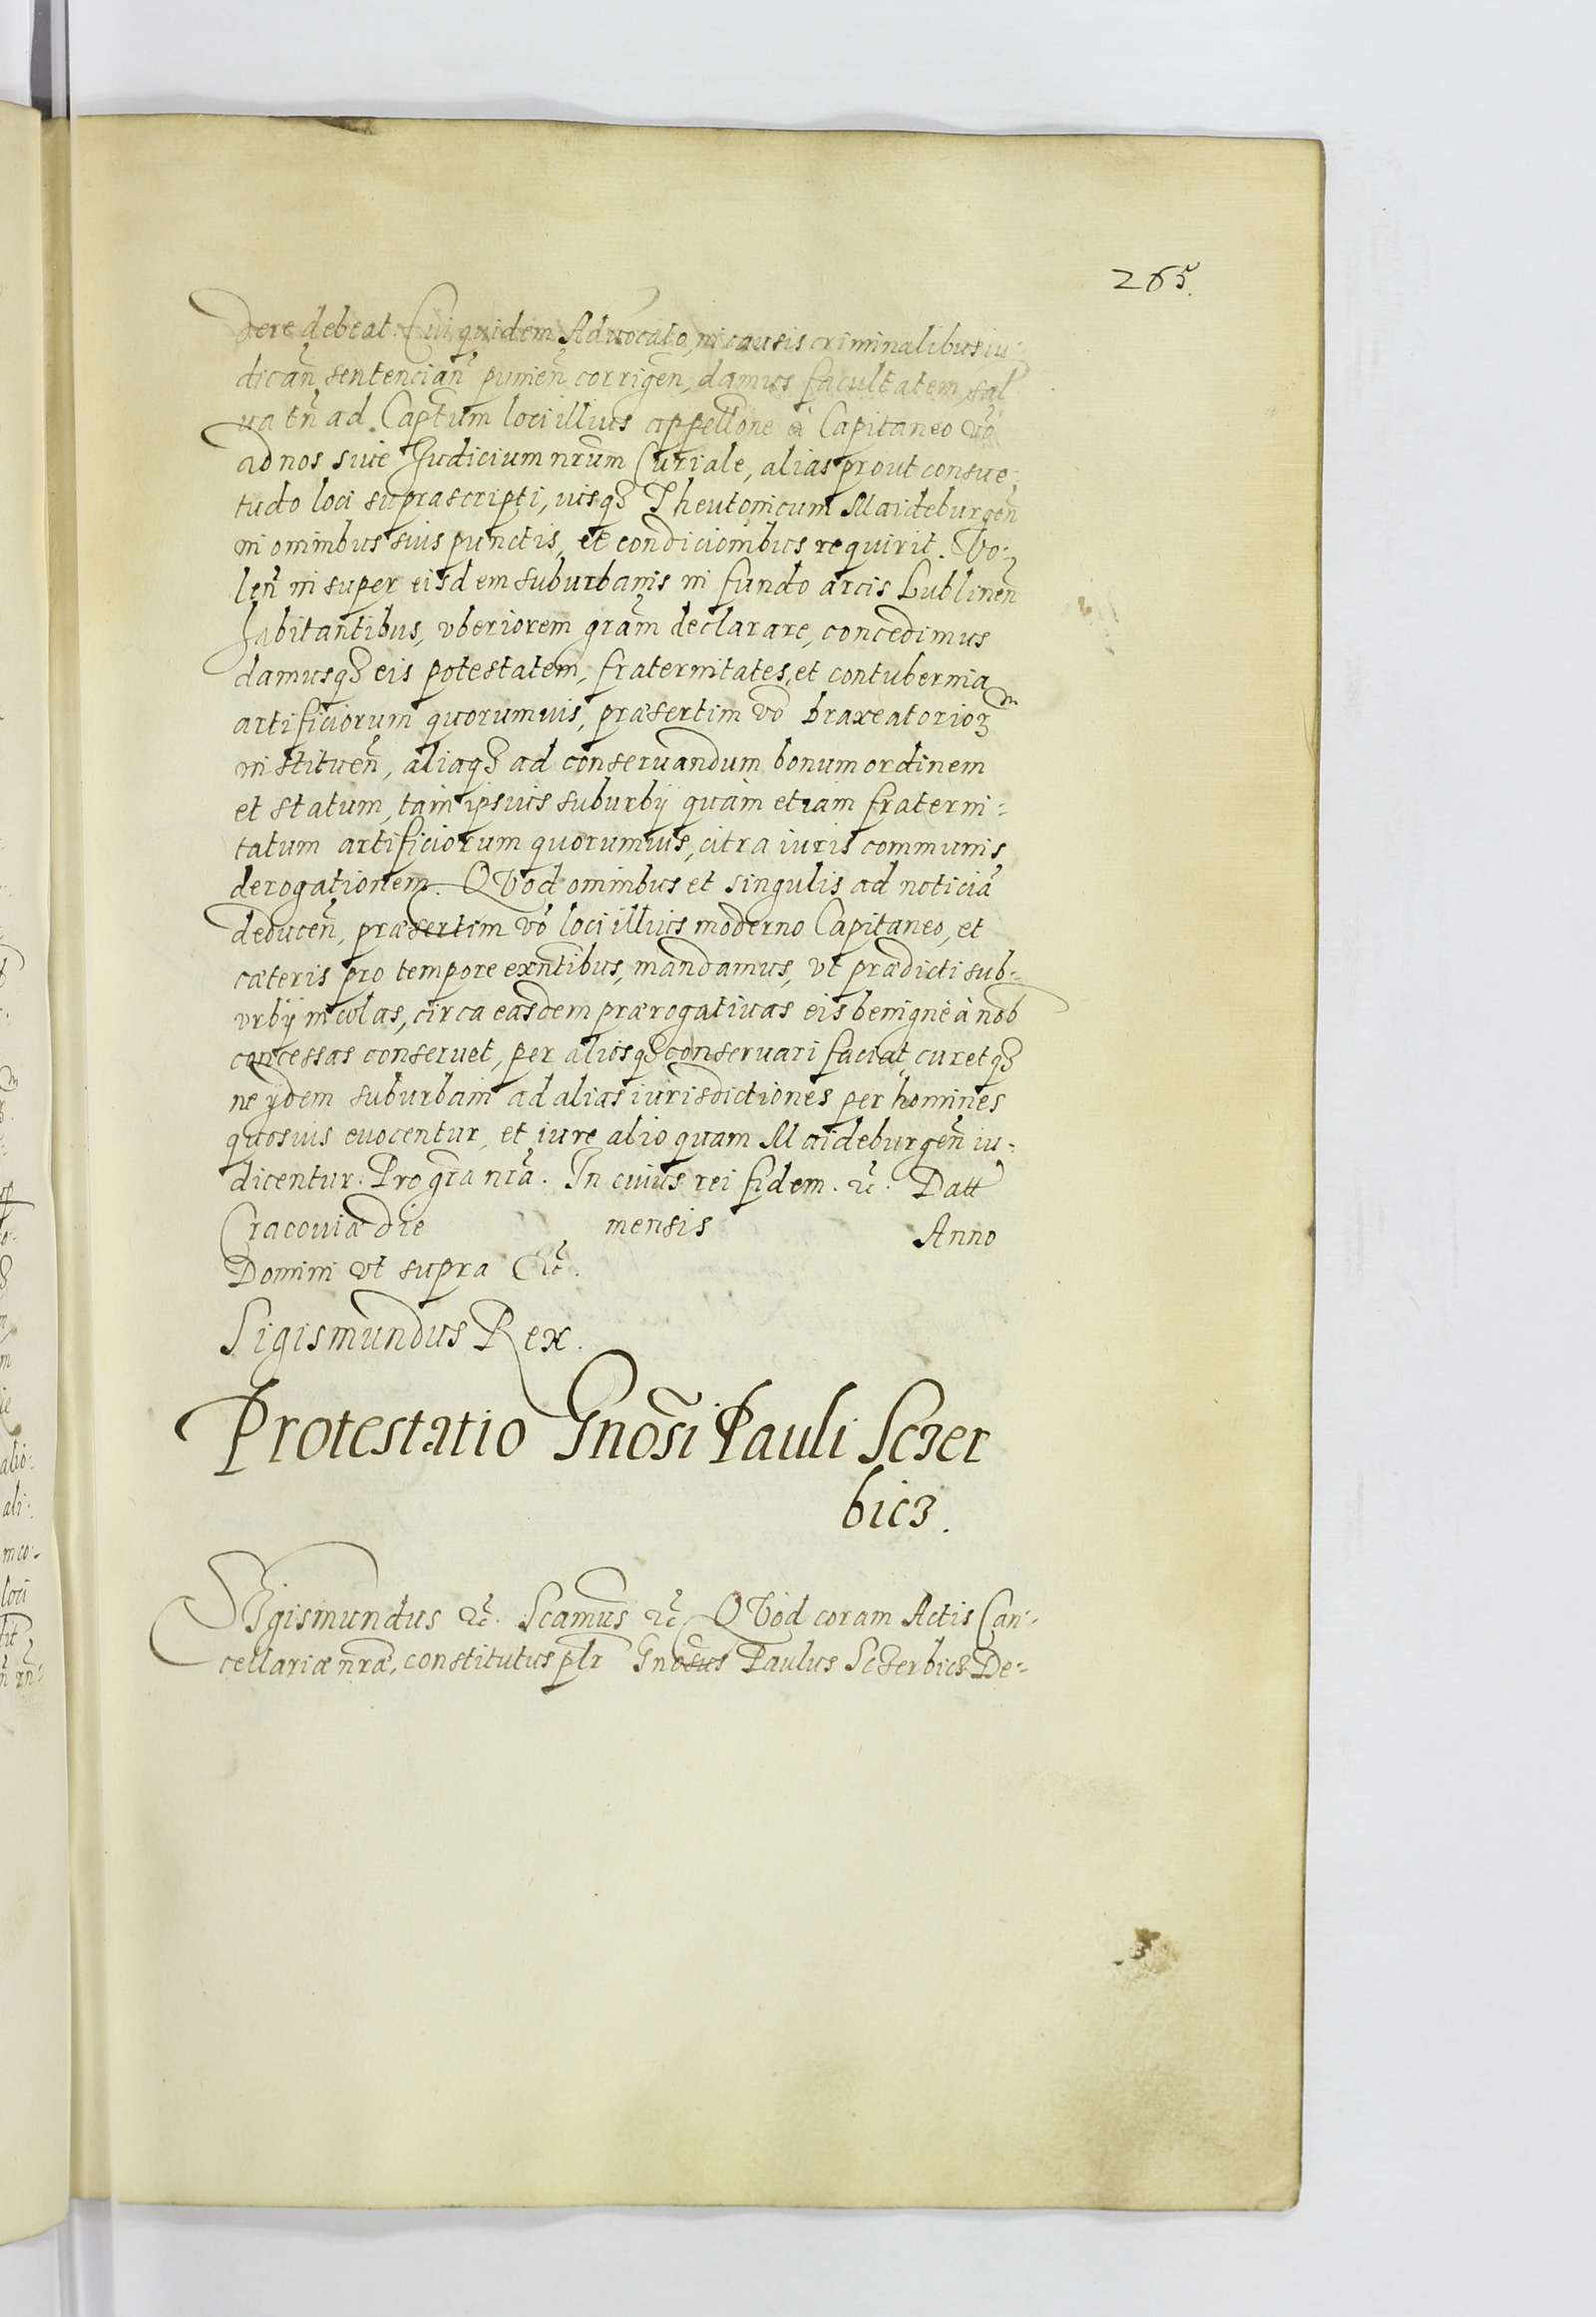 265.
dere debeat. Cui quidem Aduocato, in causis criminalibus iu-
dicañ, sentenciañ, punieñ, corrigeñ, damus facultatem, sal
ua tñ ad Captum loci illius appellõne à Capitaneo võ
ad nos siue Judicium nrum Curiale, alias prout consue-
tudo loci suprascripti, iusqȝ Theutonicum Maideburgeñ
in omnibus suis punctis, et condicionibus requirit. Vo-
leñ insuper eisdem suburbanis in fundo arcis Lublineñ
habitantibus, vberiorem grãm declarare, concedimus
damusqȝ eis potestatem, fraternitates, et contubernia
artificiorum quorumuis, præsertim võ braxeatorioȝ
instituẽn, aliaqȝ ad conseruandum bonum ordinem
et statum, tam ipsius suburbij quàm etiam fraterni-
tatum artificiorum quorumuis, citra iuris communis
derogationem. QVod omnibus et singulis ad noticiã
deduceñ, præsertim võ loci illius moderno Capitaneo, et
cæteris pro tempore exñtibus, mandamus, vt prædicti sub-
vrbij incolas, circa easdem prærogatiuas eis benignè à nob
concessas conseruet, per aliosqȝ conseruari faciat, curetqȝ
ne ijdem suburbani ad alias iurisdictiones per homines
quosuis euocentur, et iure alio quam Maideburgeñ iu-
dicentur. Pro grã nrã. In cuius rei fidem. ꝛc̃. Datt
Cracouiæ die mensis Anno
Domini vt supra ꝛc̃.
Sigismundus Rex.
Protestatio Gnõsi Pauli Sczer
bicz.
SIgismundus ꝛc̃. Scamus ꝛc̃. QVod coram Actis Can-
cellariæ nræ, constitutus plr Gnosus Paulus Sczerbicz De-